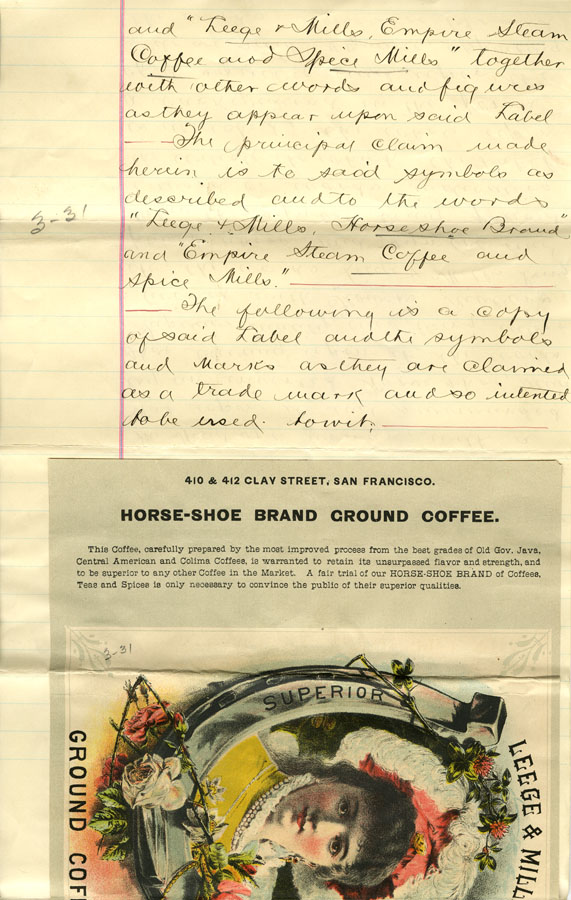 and "Leege & Mills, Empire Steam
Coffee and Spice Mills" together
with other words and figures
as they appear upon said Label
The principal claim made
herein is to said symbols as
described and to the words
"Leege & Mills, Horseshoe Brand"
3-31
and "Empire Steam Coffee and
Spice Mills."
The following is a copy
of said Label and the symbols
and Marks as they are claimed
as a trade mark and so intented
to be used. towit;
410 & 412 CLAY STREET, SAN FRANCISCO.
HORSE-SHOE BRAND GROUND COFFEE.
This Coffee, carefully prepared by the most improved process from the best grades of Old Gov. Java,
Central American and Colima Coffees, is warranted to retain its unsurpassed flavor and strength, and
to be superior to any other Coffee in the Market. A fair trial of our HORSE-SHOE BRAND of Coffees,
Teas and Spices is only necessary to convince the public of their superior qualities.
3-31
SUPERIOR
GROUND COF
LEEGE & MILL